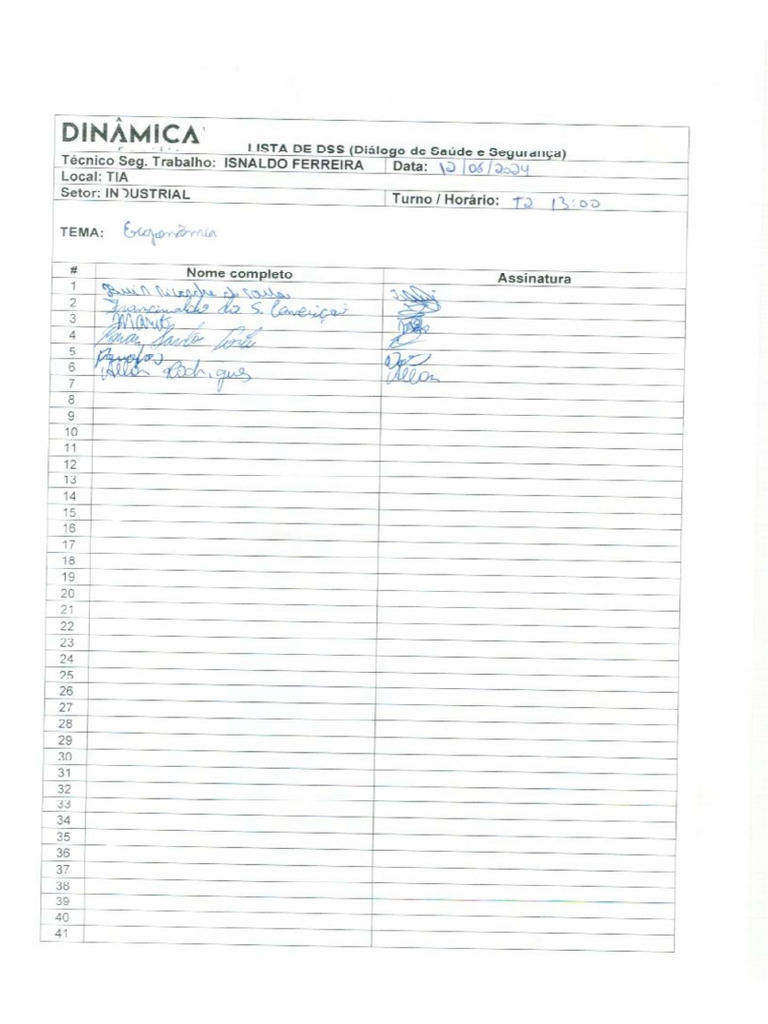 DINÂMICA
LISTA DE DSS (Diálogo de Saúde e Segurança)
Técnico Seg. Trabalho: ISNALDO FERREIRA Data: 12/06/2024
Local: TIA
Setor: INDUSTRIAL Turno / Horário: T2 13:00
TEMA: Ergonômia
# Nome completo Assinatura
1
2 Francinaldo da S.
3
4
5
6 Allan Rodrigues Allan
7
8
9
10
11
12
13
14
15
16
17
18
19
20
21
22
23
24
25
26
27
28
29
30
31
32
33
34
35
36
37
38
39
40
41